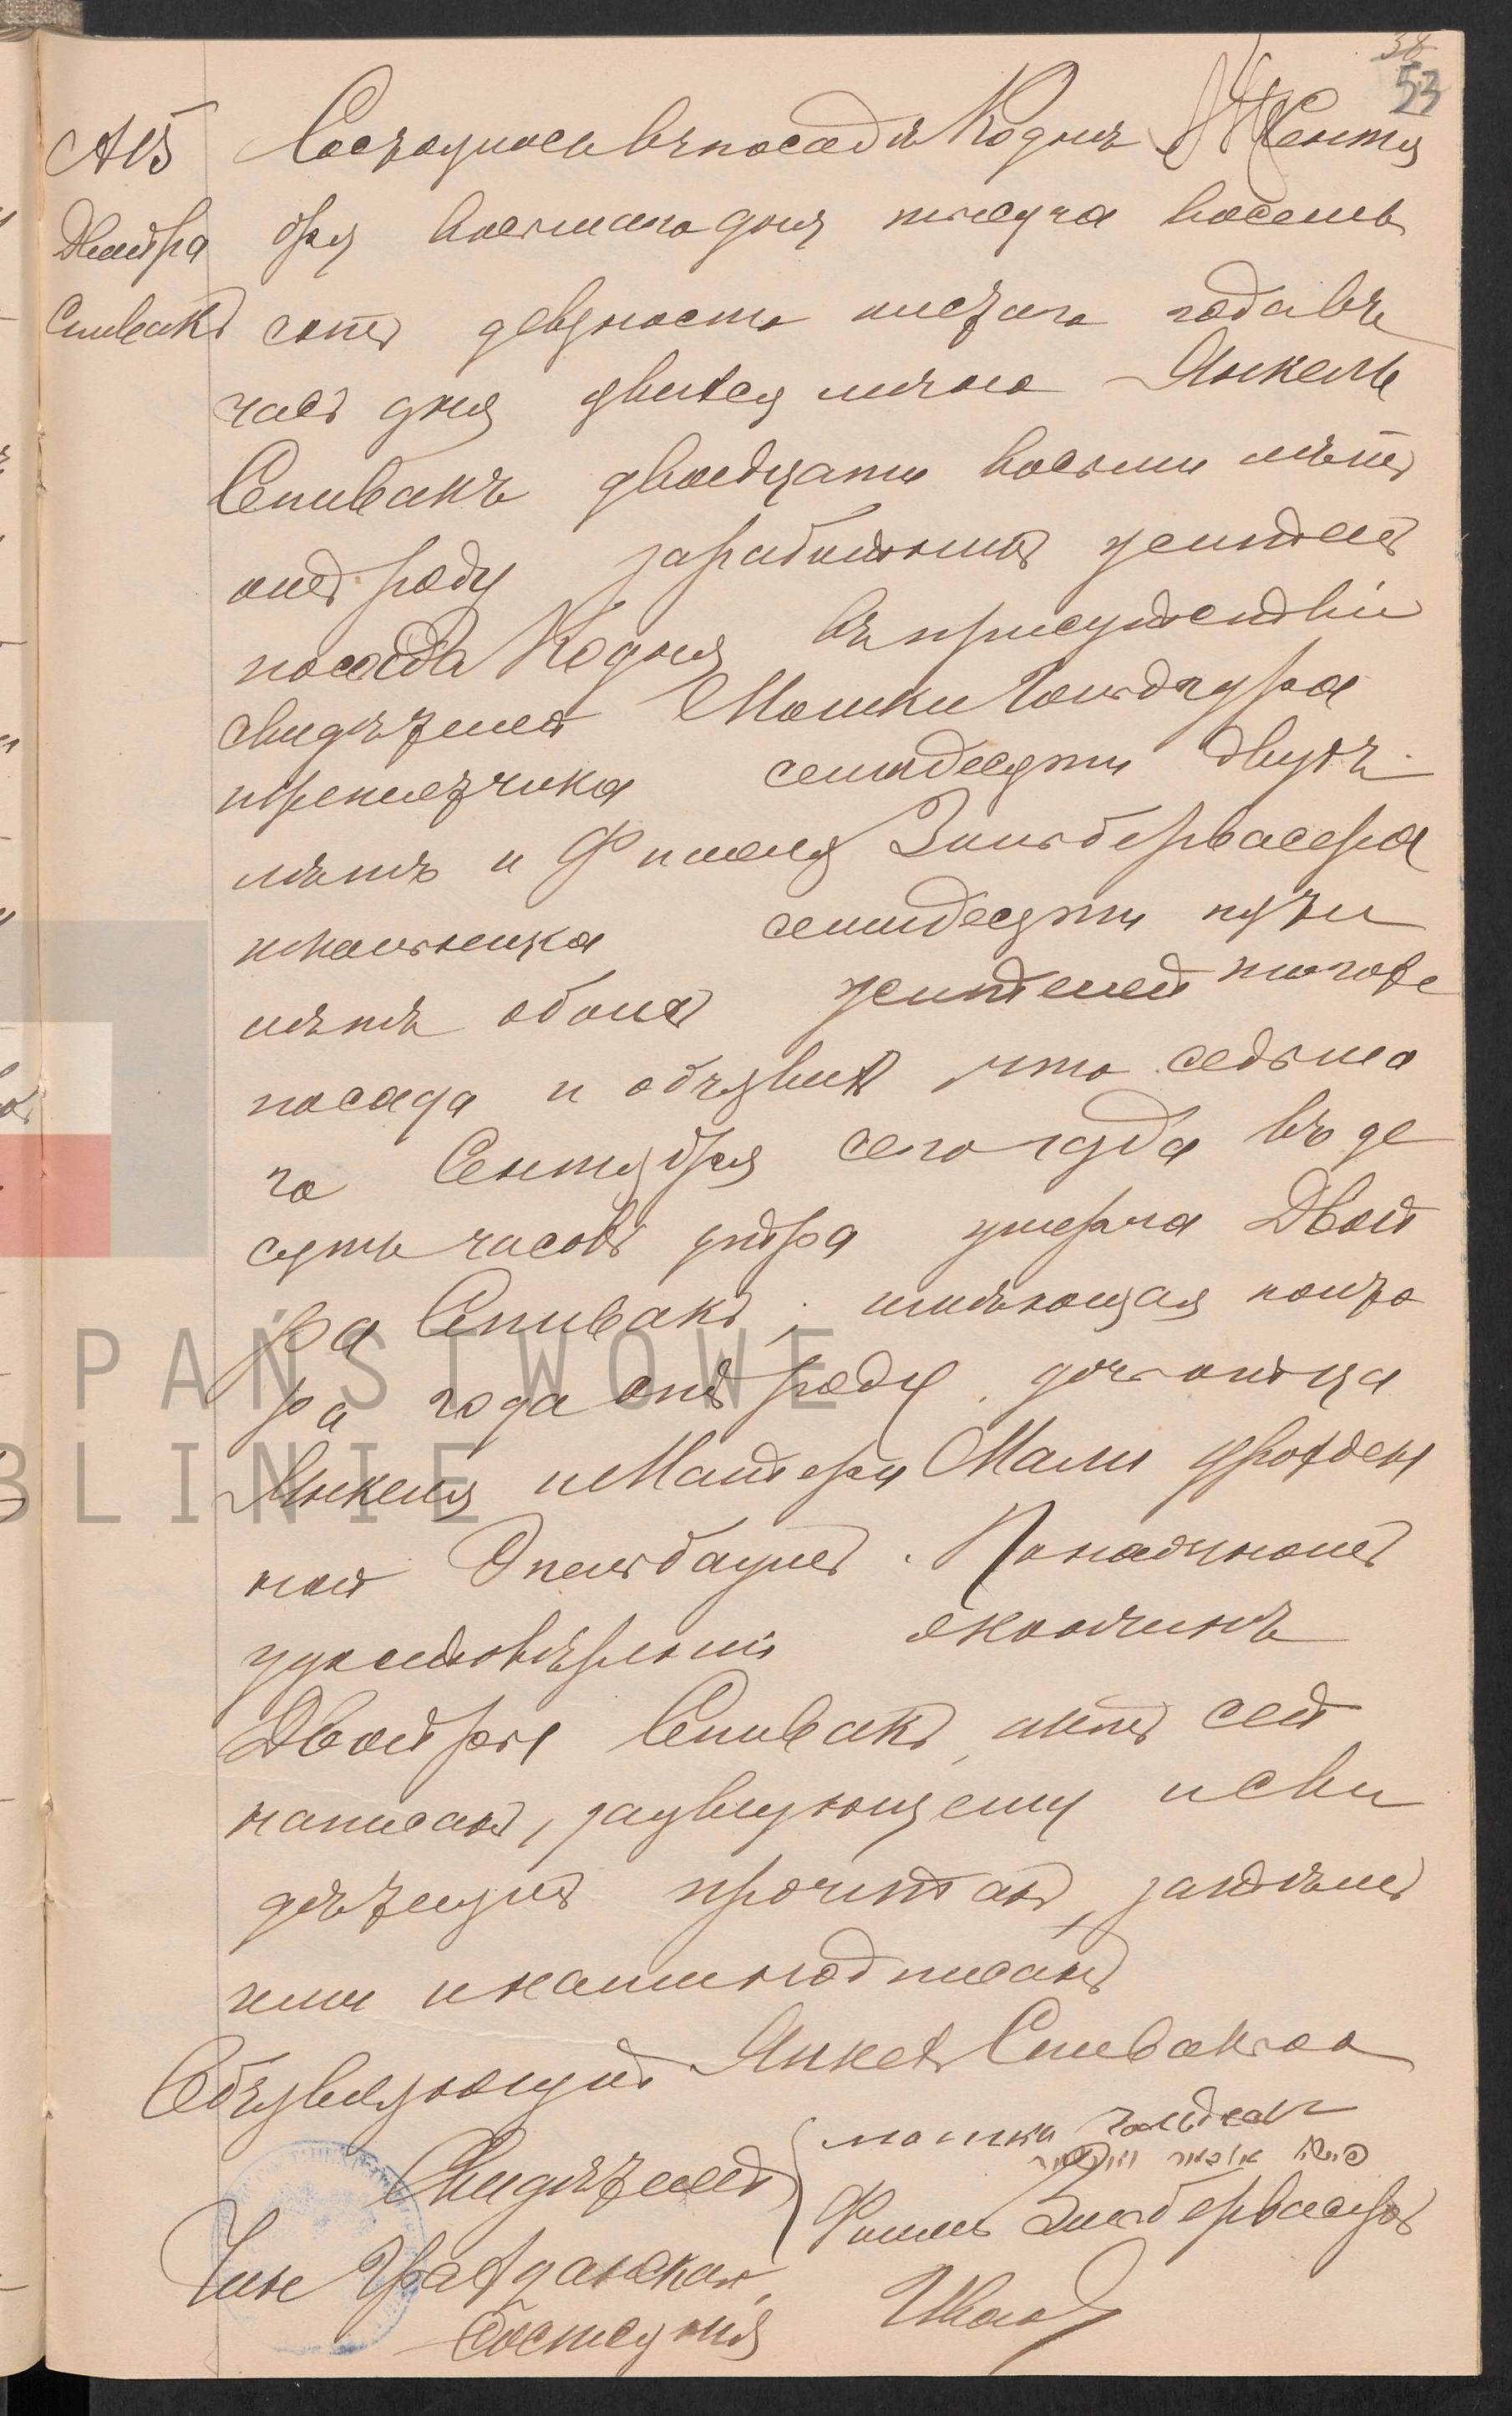 38
53
№ 5 Состоялось въ посадѣ Кодне Сентя
Двойра бря восьмаго дня тысяча восемь
Спивакъ сотъ девяносто шестаго года въ
часъ дня явился лично Янкель
Спивакъ двадцати восьми лѣтъ
отъ роду заработникъ житель
посада Кодня въ присутствіи
свидѣтелей Мошки
семидесяти двухъ
лѣтъ и Фишеля Зильбервасера
школьника семидесяти пяти
лѣтъ обоихъ жителей тогоже
посада и объявилъ что седьма
го Сентября сего года въ де
сять часовъ утра умерла Двой
ра Спивакъ, имѣющая полто
ра года отъ роду, дочь отца
Янкеля и Матери Мали урожден
ной Эпельбаумъ. По наочномъ
удостовѣреніи о кончинѣ
Двойры Спивакъ, актъ сей
написанъ, заявляющему и сви
дѣтелямъ прочитанъ, затѣмъ
ими и нами подписанъ
Объявляющій Янкель Спивакъ
Свидѣтели мошка
Фишель Зильбервасеръ
Чин. Гражданскаго
Состоянія
PAŃSTWOWE
BLINIE